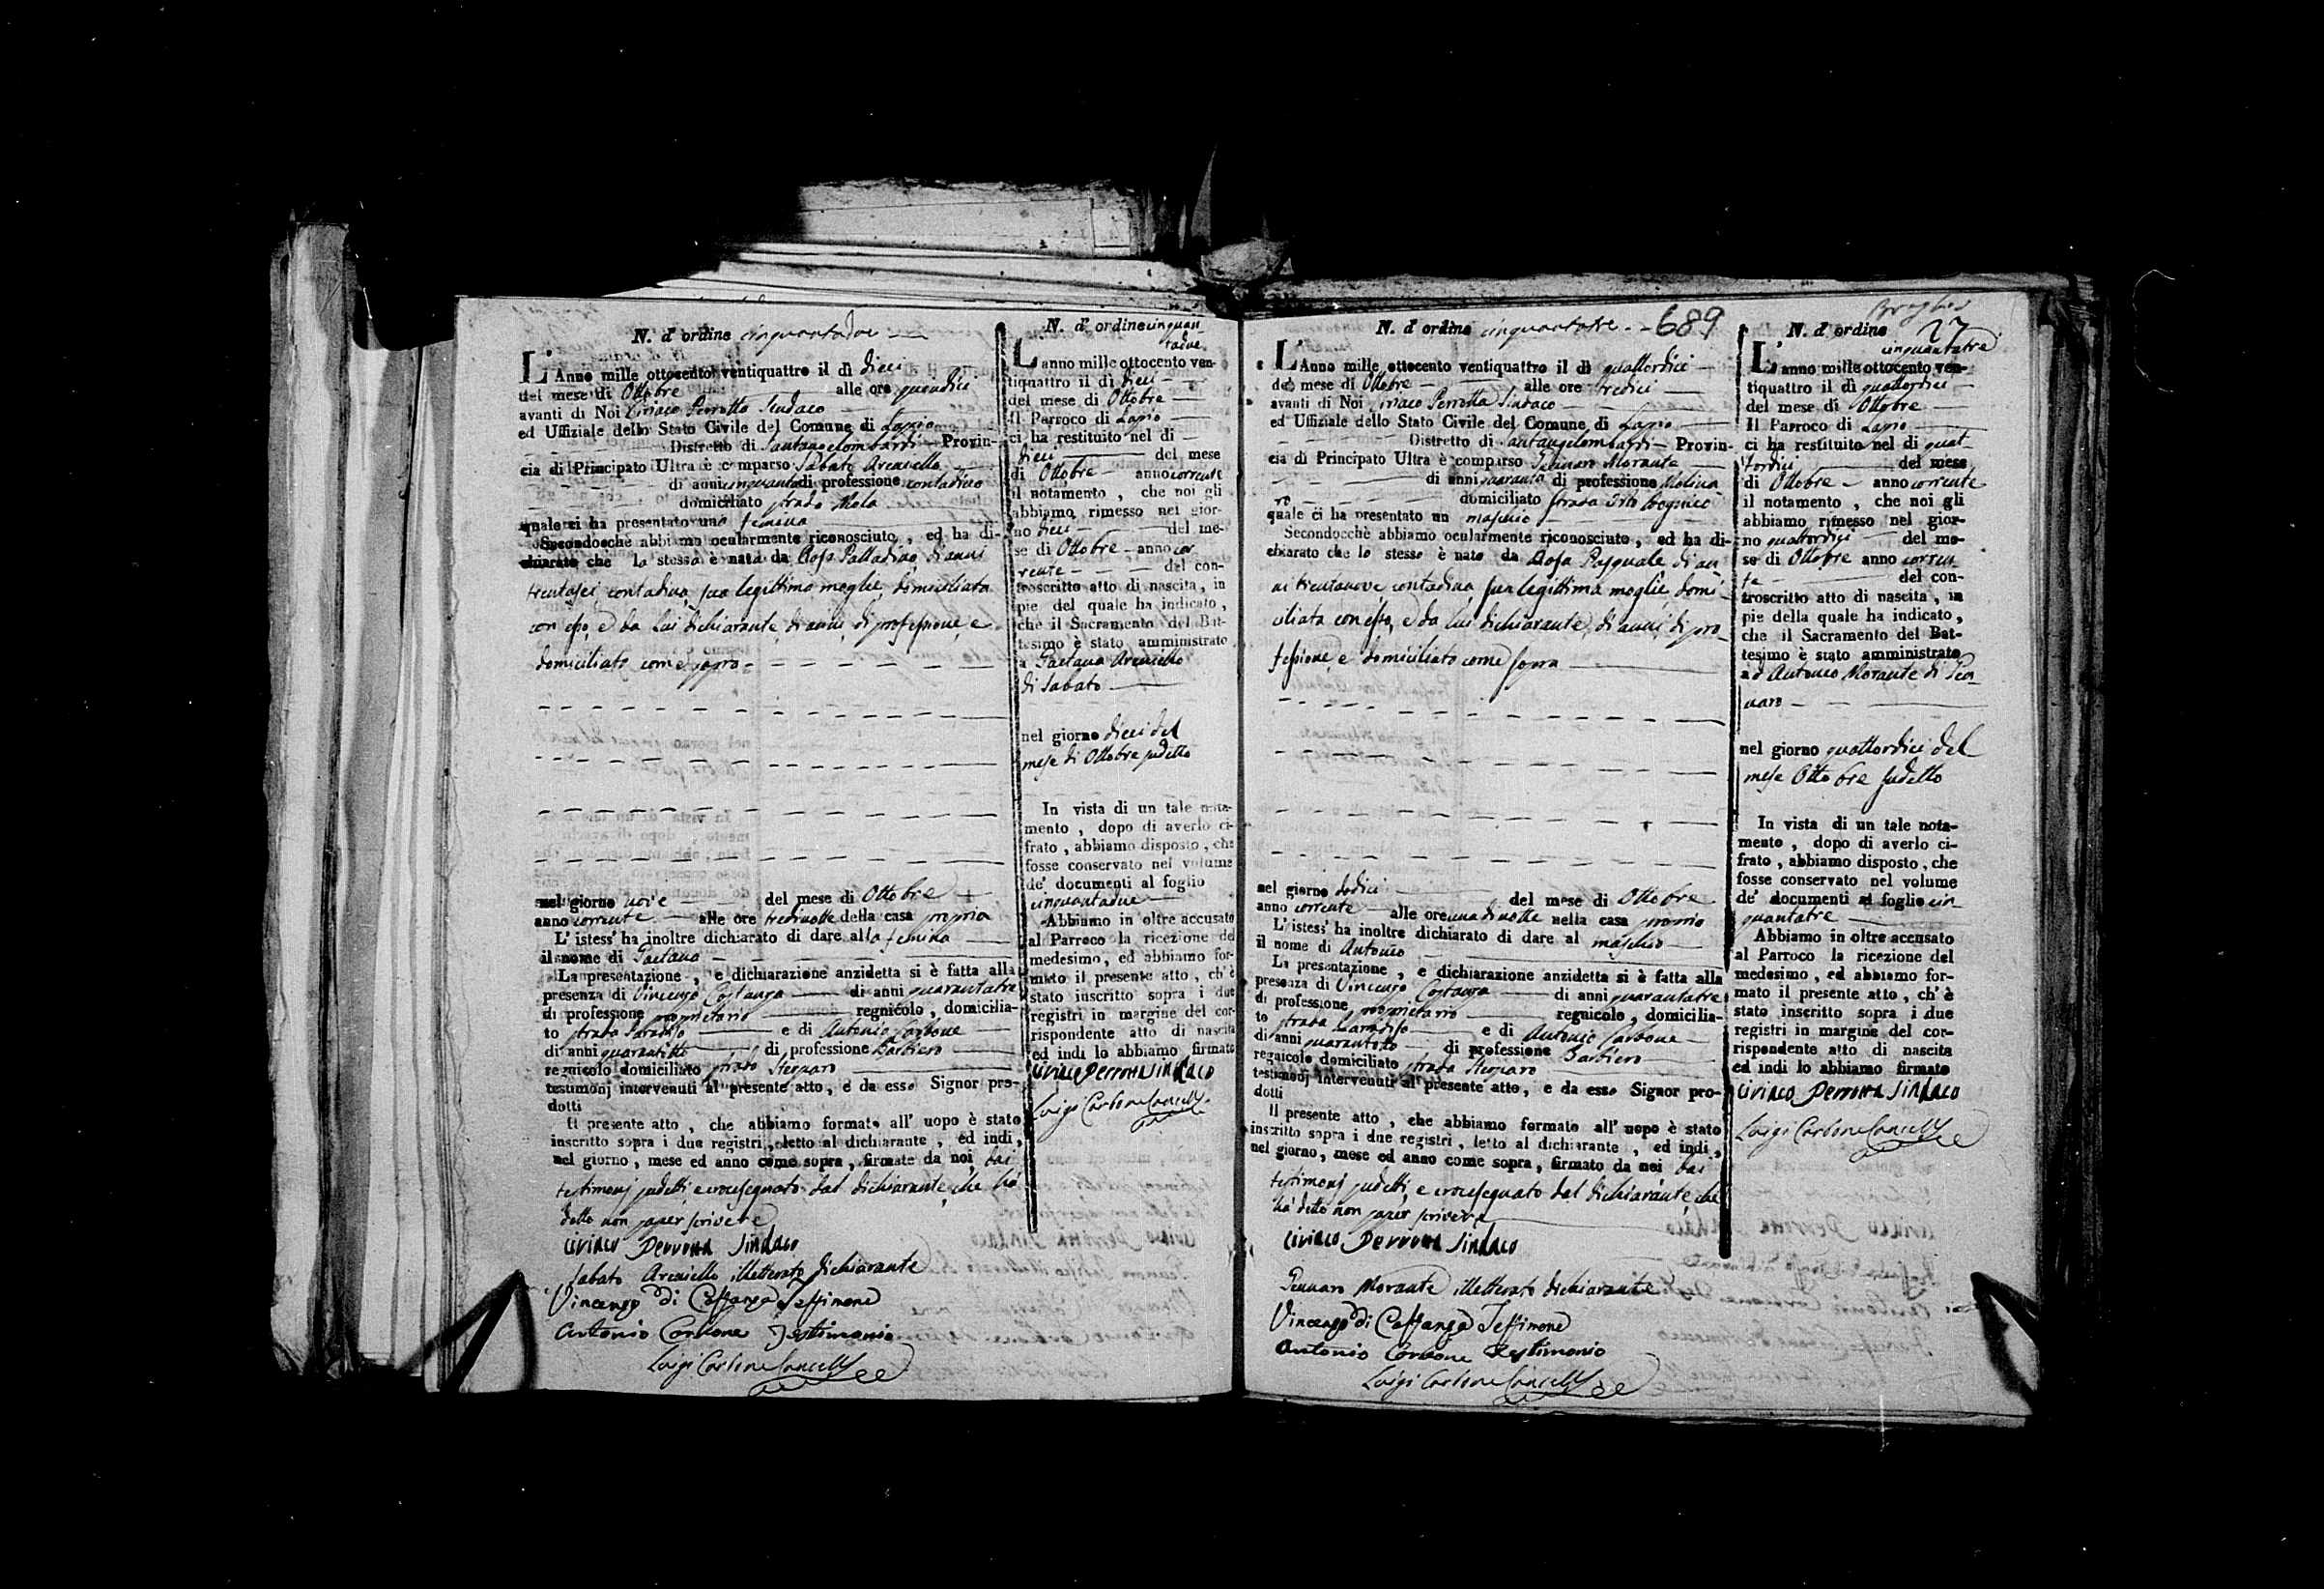 N. d' ordine cinquantadue
L' Anno mille ottocento ventiquattro il dì dieci
del mese di Ottobre alle ore quindici
avanti di Noi Ciriaco Perrotta Sindaco
ed Uffiziale dello Stato Civile del Comune di Lapio
Distretto di Santangelombardi Provin-
cia di Principato Ultra è comparso Sabato Arciniello
di anni cinquanta di professione contadino
domiciliato strada Mola
quale ci ha presentato una femina
Secondocchè abbiamo ocularmente riconosciuto, ed ha di-
chiarato che la stessa è nata da Rosa Palladino, di anni
trentasei contadina sua legittima moglie, domiciliata
con esso, e da lui dichiarante, di anni, di professione, e
domiciliato come sopra
nel giorno nove del mese di Ottobre
anno corrente alle ore tredinotte della casa propria
L' istess' ha inoltre dichiarato di dare alla femina
il nome di Gaetana
La presentazione, e dichiarazione anzidetta si è fatta alla
presenza di Vincenzo Costanza di anni quarantatre
di professione proprietario regnicolo, domicilia-
to strada Paradiso e di Antonio Carbone
di anni quarantotto di professione Barbiero
regnicolo domiciliato strada
testimonj intervenuti al presente atto, e da esso Signor pro-
dotti
Il presente atto, che abbiamo formato all' uopo è stato
inscritto sopra i due registri, letto al dichiarante, ed indi,
nel giorno, mese ed anno come sopra, firmato da noi, dai
testimonj sudetti, e crocesegnato dal dichiarante, che ha
detto non saper scrivere
Ciriaco Perrotta Sindaco
Sabato Arciniello illetterato dichiarante
Vincenzo di Costanza Testimone
Antonio Carbone Testimonio
Luigi Carbone Cancell
N. d' ordine cinquan
tadue
L' anno mille ottocento ven-
tiquattro il dì dieci
del mese di Ottobre
Il Parroco di Lapio
ci ha restituito nel dì
dieci del mese
di Ottobre anno corrente
il notamento, che noi gli
abbiamo rimesso nel gior-
no dieci del me-
se di Ottobre anno cor
rente del con-
troscritto atto di nascita, in
pie del quale ha indicato,
che il Sacramento del Bat-
tesimo è stato amministrato
a Gaetana Arciniello
di Sabato
nel giorno dieci del
mese di Ottobre sudetto
In vista di un tale nota-
mento, dopo di averlo ci-
frato, abbiamo disposto, che
fosse conservato nel volume
de' documenti al foglio
cinquantadue
Abbiamo in oltre accusato
al Parroco la ricezione del
medesimo, ed abbiamo for-
mato il presente atto, ch' è
stato inscritto sopra i due
registri in margine del cor-
rispondente atto di nascita
ed indi lo abbiamo firmato
Ciriaco Perrotta Sindaco
Luigi Carbone Cancell
N. d' ordine cinquantatre 689
L' Anno mille ottocento ventiquattro il dì quattordici
del mese di Ottobre alle ore tredici
avanti di Noi Ciriaco Perrotta Sindaco
ed Uffiziale dello Stato Civile del Comune di Lapio
Distretto di Santangelombardi Provin-
cia di Principato Ultra è comparso Gennaro Morante
di anni quaranta di professione Molina
ro domiciliato strada Orto
quale ci ha presentato un maschio
Secondocchè abbiamo ocularmente riconosciuto, ed ha di-
chiarato che lo stesso è nato da Rosa Pasquale di an
ni trentanove contadina sua legittima moglie, domi-
ciliata con esso, e da lui dichiarante, di anni, di pro-
fessione, e domiciliato come sopra
nel giorno dodici del mese di Ottobre
anno corrente alle ore una di notte nella casa propria
L' istess' ha inoltre dichiarato di dare al maschio
il nome di Antonio
La presentazione, e dichiarazione anzidetta si è fatta alla
presenza di Vincenzo Costanza di anni quarantatre
di professione proprietario regnicolo, domicilia-
to strada Paradiso e di Antonio Carbone
di anni quarantotto di professione Barbiero
regnicolo domiciliato strada
testimonj intervenuti al presente atto, e da esso Signor pro-
dotti
Il presente atto, che abbiamo formato all' uopo è stato
inscritto sopra i due registri, letto al dichiarante, ed indi,
nel giorno, mese ed anno come sopra, firmato da noi dai
testimonj sudetti, e crocesegnato dal dichiarante, che
ha detto non saper scrivere
Ciriaco Perrotta Sindaco
Gennaro Morante illetterato dichiarante
Vincenzo di Costanza Testimone
Antonio Carbone Testimonio
Luigi Carbone Cancell
N. d' ordine 27
cinquantatre
L' anno mille ottocento ven-
tiquattro il dì quattordici
del mese di Ottobre
Il Parroco di Lapio
ci ha restituito nel dì quat-
tordici del mese
di Ottobre anno corrente
il notamento, che noi gli
abbiamo rimesso nel gior-
no quattordici del me-
se di Ottobre anno corren
te del con-
troscritto atto di nascita, in
pie della quale ha indicato,
che il Sacramento del Bat-
tesimo è stato amministrato
ad Antonio Morante di Gen-
naro
nel giorno quattordici del
mese Ottobre sudetto
In vista di un tale nota-
mento, dopo di averlo ci-
frato, abbiamo disposto, che
fosse conservato nel volume
de' documenti al foglio cin
quantatre
Abbiamo in oltre accusato
al Parroco la ricezione del
medesimo, ed abbiamo for-
mato il presente atto, ch' è
stato inscritto sopra i due
registri in margine del cor-
rispondente atto di nascita
ed indi lo abbiamo firmato
Ciriaco Perrotta Sindaco
Luigi Carbone Cancell